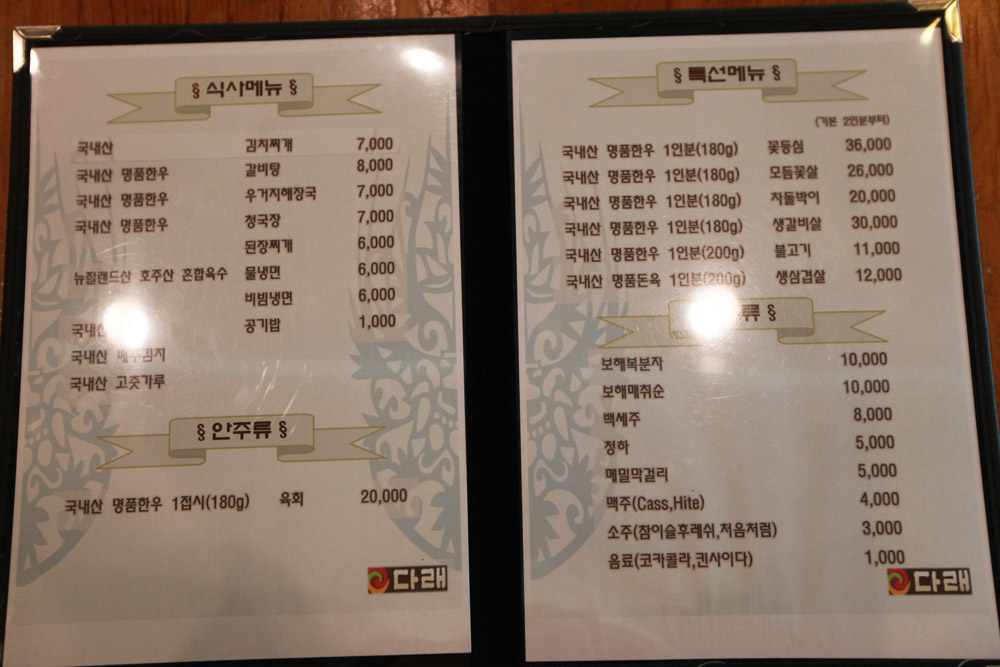 § 식사메뉴 §
국내산 김치찌개 7,000
국내산 명품한우 갈비탕 8,000
국내산 명품한우 우거지해장국 7,000
국내산 명품한우 청국장 7,000
된장찌개 6,000
뉴질랜드산 호주산 혼합육수 물냉면 6,000
비빔냉면 6,000
국내산 공기밥 1,000
국내산 배추김치
국내산 고춧가루
§ 안주류 §
국내산 명품한우 1접시(180g) 육회 20,000
다래
§ 특선메뉴 §
(기본 2인분부터)
국내산 명품한우 1인분(180g) 꽃등심 36,000
국내산 명품한우 1인분(180g) 모듬꽃살 26,000
국내산 명품한우 1인분(180g) 차돌박이 20,000
국내산 명품한우 1인분(180g) 생갈비살 30,000
국내산 명품한우 1인분(200g) 불고기 11,000
국내산 명품돈육 1인분(200g) 생삼겹살 12,000
류 §
보해복분자 10,000
보해매취순 10,000
백세주 8,000
청하 5,000
메밀막걸리 5,000
맥주(Cass,Hite) 4,000
소주(참이슬후레쉬,처음처럼) 3,000
음료(코카콜라,킨사이다) 1,000
다래